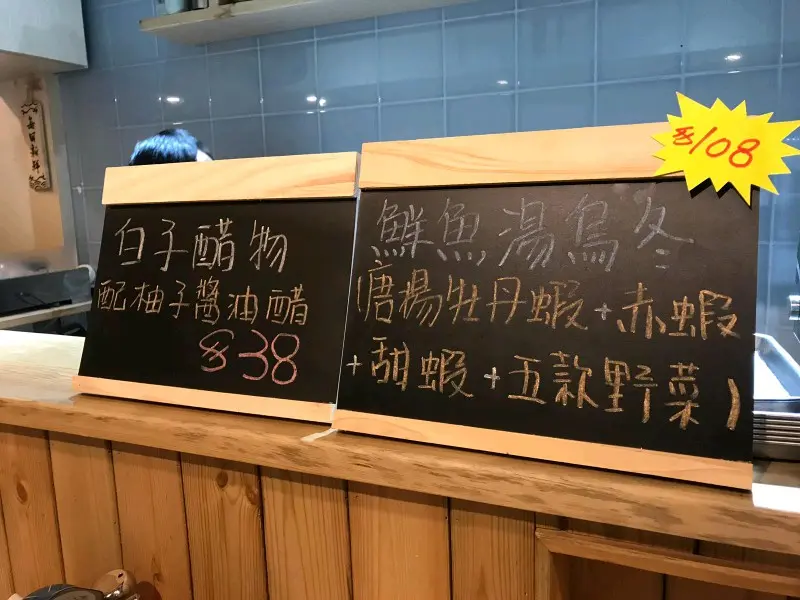 白子醋物
配柚子醬油醋
$38
$108
鮮魚湯烏冬
(唐揚牡丹蝦+赤蝦
+甜蝦+五款野菜)